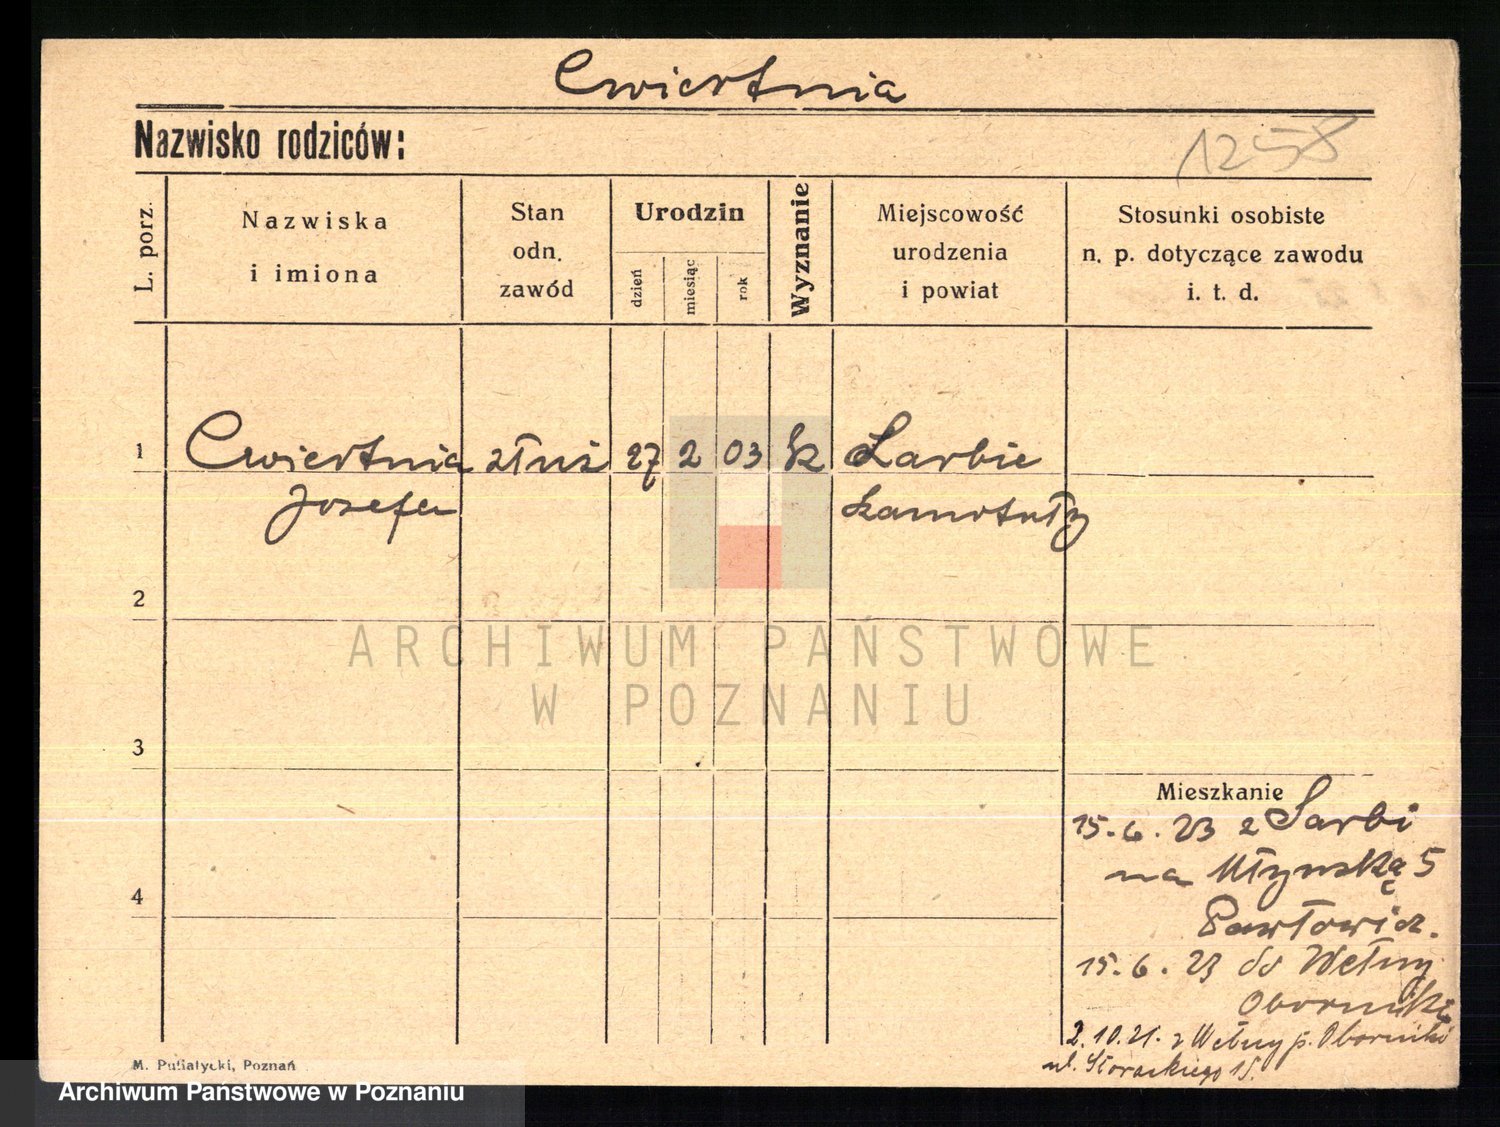 Cwiertnia
Nazwisko rodziców:
1258
L. porz.
Nazwiska
i imiona
Stan
odn.
zawód
Urodzin
dzień
miesiąc
rok
Wyznanie
Miejscowość
urodzenia
i powiat
Stosunki osobiste
n. p. dotyczące zawodu
i. t. d.
1 Cwiertnia służ 27 2 03 k Sarbie
Józefa Szamotuły
2
ARCHIWUM PAŃSTWOWE
W POZNANIU
3
Mieszkanie
15.6.23 z Sarbi
na Młyńską 5
15.6.23 do Wełny
Oborniki
4
2.10. z Wełny p. Oborniki
ul. 15.
M. Putiatycki, Poznań
Archiwum Państwowe w Poznaniu